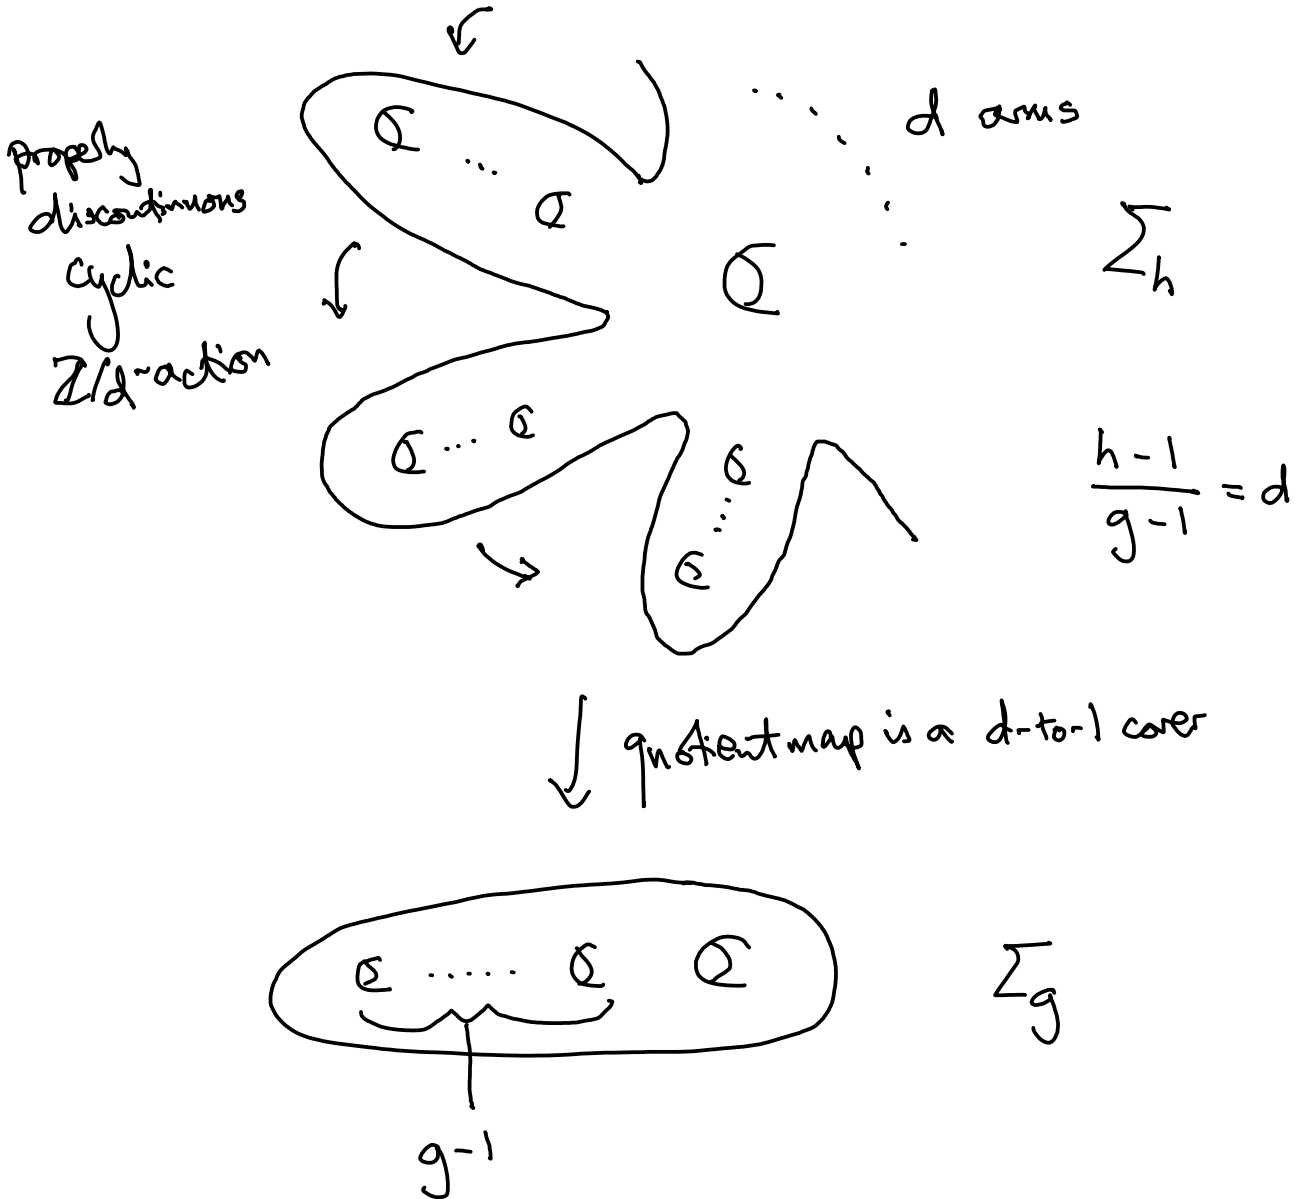 d arms
properly
discontinuous
cyclic
ℤ/d-action
Σ_h
h-1
g-1
= d
quotient map is a d-to-1 cover
Σ_g
g-1